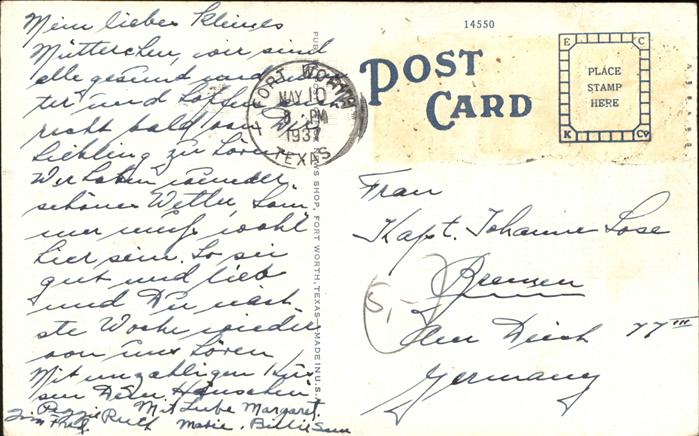 Mein lieber kleines
Mütterchen, wir sind
alle gesund und
und hoffen
recht bald von
Liebling zu hören
Wir haben wunder
schönes Wetter, Som
mer muss wohl
hier sein. So sei
gut und lieb
und Du näch
ste Woche wieder
von uns hören
Mit unzähligen Küs
sen Dein Hänschen
Peggie Mit Liebe Margaret.
Jim Fred Ruth Marie. Billie Sam
PUB NEWS SHOP, FORT WORTH, TEXAS — MADE IN U.S.A.
FORT WORTH
1
MAY 10
8 PM
1937
TEXAS
14550
POST
CARD
E C
PLACE
STAMP
HERE
K Co
Frau
Kapt. Johanne Lose
Bremen
5,-
Am Deich 77 III
Germany